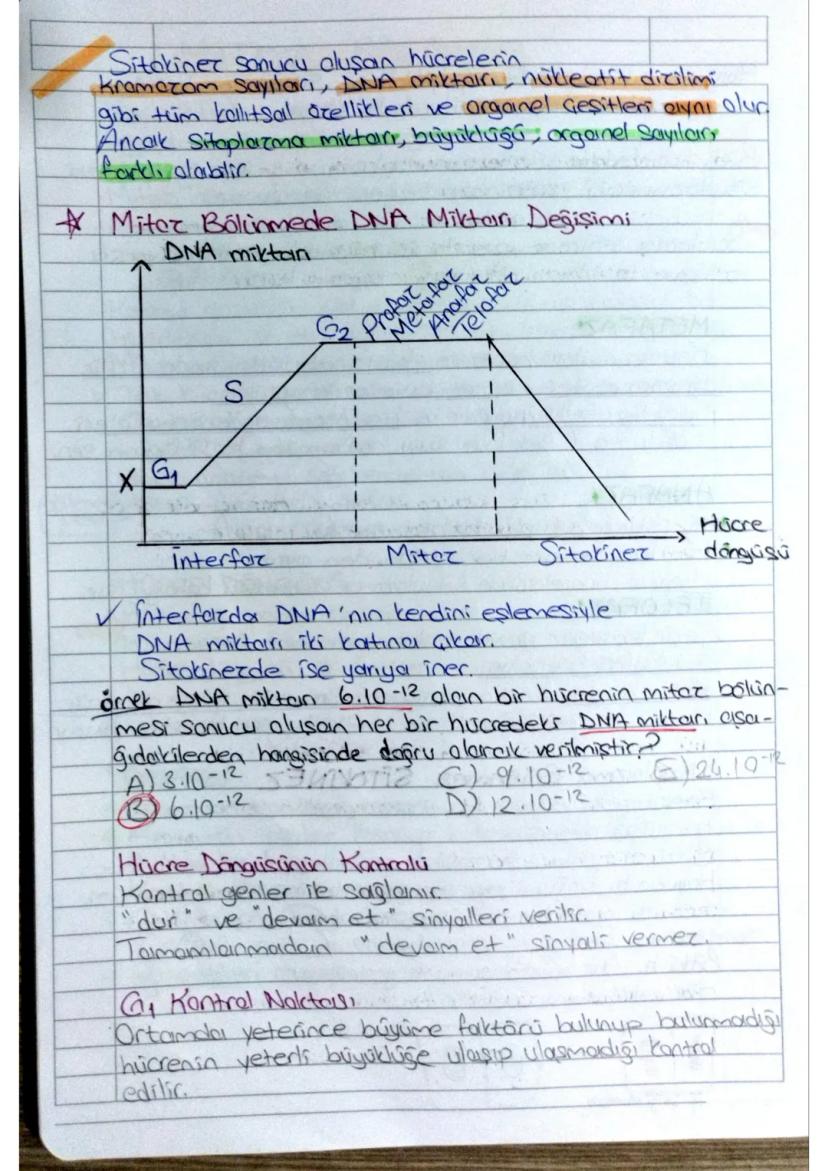 Sitokinez sonucu oluşan hücrelerin
Kromozom sayıları, DNA miktarı, nükleotit dizilimi
gibi tüm kalıtsal özellikleri ve organel çeşitleri aynı olur.
Ancak sitoplazma miktarı, büyüklüğü, organel sayıları
farklı olabilir.
☆ Mitoz Bölünmede DNA Miktarı Değişimi
DNA miktarı
G2 Profaz Metafaz Anafaz Telofaz
S
X G1
Hücre
döngüsü
İnterfaz Mitoz Sitokinez
✓ İnterfazda DNA'nın kendini eşlemesiyle
DNA miktarı iki katına çıkar.
Sitokinezde ise yarıya iner.
örnek DNA miktarı 6.10-12 olan bir hücrenin mitoz bölün-
mesi sonucu oluşan her bir hücredeki DNA miktarı aşa-
ğıdakilerden hangisinde doğru olarak verilmiştir?
A) 3.10-12 C) 9.10-12 E) 24.10-12
B) 6.10-12 D) 12.10-12
Hücre Döngüsünün Kontrolü
Kontrol genler ile sağlanır.
"dur" ve "devam et" sinyalleri verilir.
Tamamlanmadan "devam et" sinyali vermez.
G1 Kontrol Noktası
Ortamda yeterince büyüme faktörü bulunup bulunmadığı
hücrenin yeterli büyüklüğe ulaşıp ulaşmadığı kontrol
edilir.